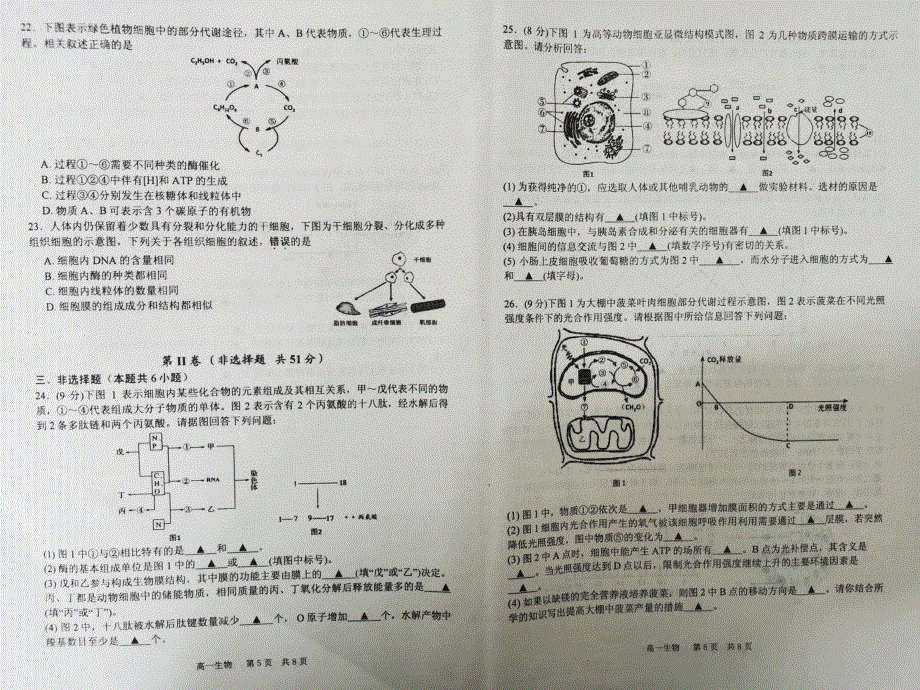 22．下图表示绿色植物细胞中的部分代谢途径，其中 A、B 代表物质，①～⑥代表生理过
程。相关叙述正确的是
C₂H₅OH + CO₂ 丙氨酸
② ③
① A ④
C₆H₁₂O₆ CO₂
⑥ B ⑤
C₅
A. 过程①～⑥需要不同种类的酶催化
B. 过程①②④中伴有[H]和 ATP 的生成
C. 过程③④分别发生在核糖体和线粒体中
D. 物质 A、B 可表示含 3 个碳原子的有机物
23．人体内仍保留着少数具有分裂和分化能力的干细胞，下图为干细胞分裂、分化成多种
组织细胞的示意图，下列关于各组织细胞的叙述，错误的是
A. 细胞内 DNA 的含量相同
B. 细胞内酶的种类都相同
C. 细胞内线粒体的数量相同
D. 细胞膜的组成成分和结构都相似
干细胞
脂肪细胞 成纤维细胞 肌细胞
第 II 卷（非选择题 共 51 分）
三、非选择题（本题共 6 小题）
24．(9 分)下图 1 表示细胞内某些化合物的元素组成及其相互关系，甲～戊代表不同的物
质，①～④代表组成大分子物质的单体。图 2 表示含有 2 个丙氨酸的十八肽，经水解后得
到 2 条多肽链和两个丙氨酸。请据图回答下列问题：
N P ① 甲
戊
C H O ② RNA 染色体
丁
丙 ④ ③ 乙
N
图1
1 18
1—7 9—17 丙氨酸
图2
(1) 图 1 中①与②相比特有的是 ▲ 和 ▲ 。
(2) 酶的基本组成单位是图 1 中的 ▲ 或 ▲ (填图中标号)。
(3) 戊和乙参与构成生物膜结构，其中膜的功能主要由膜上的 ▲ (填“戊”或“乙”)决定。
丙、丁都是动物细胞中的储能物质，相同质量的丙、丁氧化分解后释放能量多的是 ▲
(填“丙”或“丁”)。
(4) 图 2 中，十八肽被水解后肽键数量减少 ▲ 个，O 原子增加 ▲ 个，水解产物中
羧基数目至少是 ▲ 个。
高一生物 第 5 页 共 8 页
25．(8 分)下图 1 为高等动物细胞亚显微结构模式图，图 2 为几种物质跨膜运输的方式示
意图。请分析回答：
① ② ③ ⑧ ④ ⑤ ⑥ ⑦
图1
a b c d
图2
(1) 为获得纯净的①，应选取人体或其他哺乳动物的 ▲ 做实验材料。选材的原因是
▲ 。
(2)具有双层膜的结构有 ▲ (填图 1 中标号)。
(3) 在胰岛细胞中，与胰岛素合成和分泌有关的细胞器有 ▲ (填图 1 中标号)。
(4) 细胞间的信息交流与图 2 中 ▲ (填数字序号)有密切的关系。
(5) 小肠上皮细胞吸收葡萄糖的方式为图 2 中 ▲ ，而水分子进入细胞的方式为 ▲
和 ▲ (填字母)。
26．(9 分)下图 1 为大棚中菠菜叶肉细胞部分代谢过程示意图，图 2 表示菠菜在不同光照
强度条件下的光合作用强度。请根据图中所给信息回答下列问题：
甲
(CH₂O)
乙
图1
CO₂释放量
A
O B D 光照强度
C
图2
(1) 图 1 中，物质①②依次是 ▲ ，甲细胞器增加膜面积的方式主要是通过 ▲ 。
(2) 图 1 细胞内光合作用产生的氧气被该细胞呼吸作用利用需要通过 ▲ 层膜，若突然
降低光照强度，图中物质⑤的变化为 ▲ 。
(3) 图 2 中 A 点时，细胞中能产生 ATP 的场所有 ▲ 。B 点为光补偿点，其含义是
▲ 。当光照强度达到 D 点以后，限制光合作用强度继续上升的主要环境因素是
▲ 。
(4) 如果以缺镁的完全营养液培养菠菜，则图 2 中 B 点的移动方向是 ▲ 。请你结合所
学的知识写出提高大棚中菠菜产量的措施 ▲ 。
高一生物 第 6 页 共 8 页